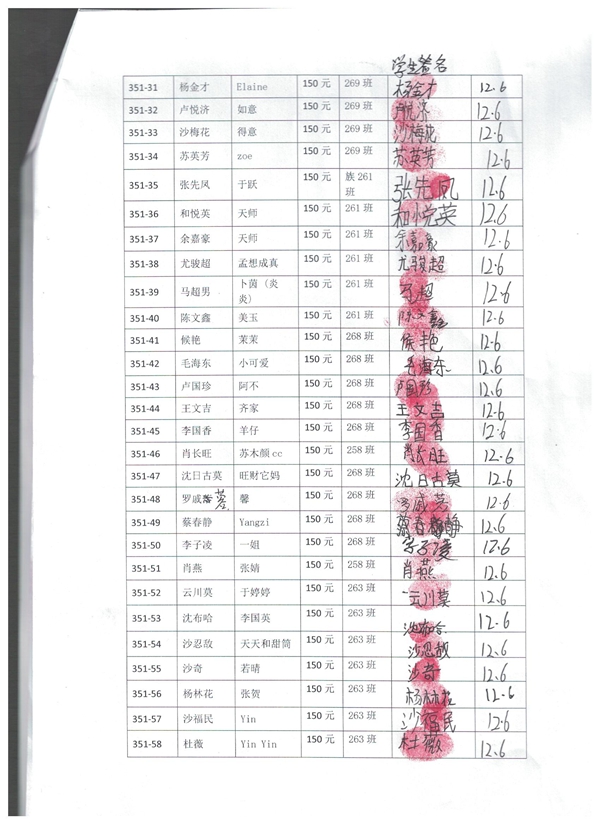 学生签名
351-31 杨金才 Elaine 150 元 269 班 杨金才 12.6
351-32 卢悦济 如意 150 元 269 班 卢悦济 12.6
351-33 沙梅花 得意 150 元 269 班 沙梅花 12.6
351-34 苏英芳 zoe 150 元 269 班 苏英芳 12.6
351-35 张先凤 于跃 150 元 族 261 班 张先凤 12.6
351-36 和悦英 天师 150 元 261 班 和悦英 12.6
351-37 余嘉豪 天师 150 元 261 班 余嘉豪 12.6
351-38 尤骏超 孟想成真 150 元 261 班 尤骏超 12.6
351-39 马超男 卜茵（炎炎） 150 元 261 班 12.6
351-40 陈文鑫 美玉 150 元 261 班 陈文鑫 12.6
351-41 候艳 茉茉 150 元 268 班 候艳 12.6
351-42 毛海东 小可爱 150 元 268 班 毛海东 12.6
351-43 卢国珍 阿不 150 元 268 班 卢国珍 12.6
351-44 王文吉 齐家 150 元 268 班 王文吉 12.6
351-45 李国香 羊仔 150 元 268 班 李国香 12.6
351-46 肖长旺 苏木颜 cc 150 元 258 班 肖长旺 12.6
351-47 沈日古莫 旺财它妈 150 元 268 班 沈日古莫 12.6
351-48 罗戚 馨 150 元 268 班 12.6
351-49 蔡春静 Yangzi 150 元 268 班 蔡春静 12.6
351-50 李子凌 一姐 150 元 268 班 李子凌 12.6
351-51 肖燕 张婧 150 元 258 班 肖燕 12.6
351-52 云川莫 于婷婷 150 元 263 班 云川莫 12.6
351-53 沈布哈 李国英 150 元 263 班 沈布哈 12.6
351-54 沙忍敌 天天和甜筒 150 元 263 班 沙忍敌 12.6
351-55 沙奇 若晴 150 元 263 班 沙奇 12.6
351-56 杨林花 张贺 150 元 263 班 杨林花 12.6
351-57 沙福民 Yin 150 元 263 班 沙福民 12.6
351-58 杜薇 Yin Yin 150 元 263 班 杜薇 12.6